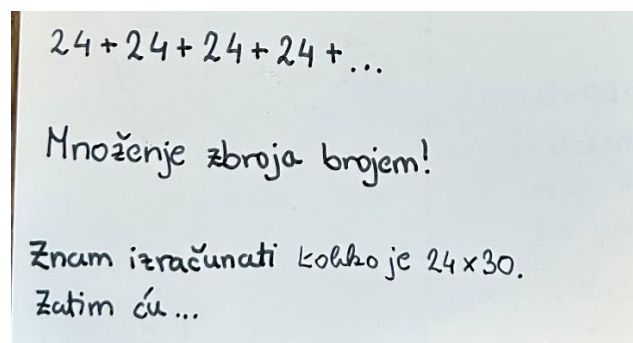 24 + 24 + 24 + 24 + ...
Množenje zbroja brojem!
Znam izračunati koliko je 24 x 30.
Zatim ću ...